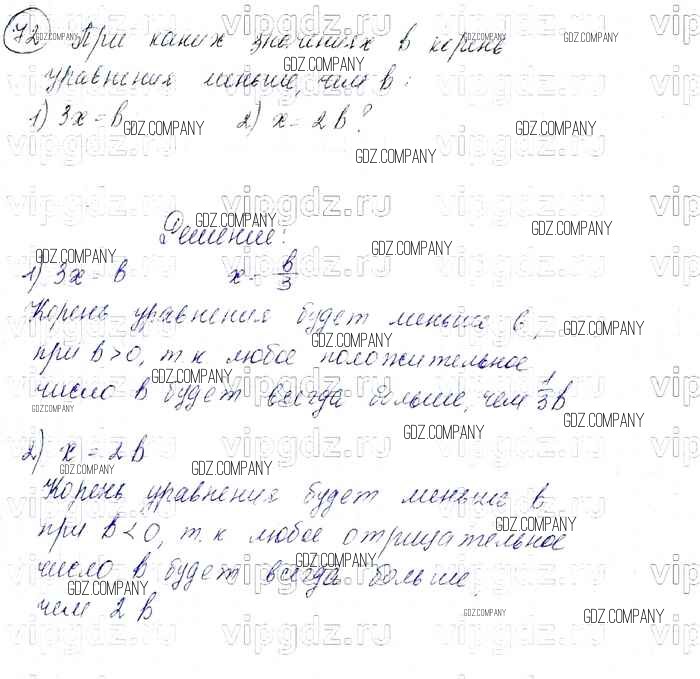 72 При каких значениях в корень
уравнения меньше, чем в:
1) 3х = в 2) х = 2в?
Решение:
1) 3х = в х = в/3
Корень уравнения будет меньше в,
при в > 0, т.к любое положительное
число в будет всегда больше, чем 1/3 в
2) х = 2в
Корень уравнения будет меньше в
при в < 0, т.к любое отрицательное
число в будет всегда больше,
чем 2в